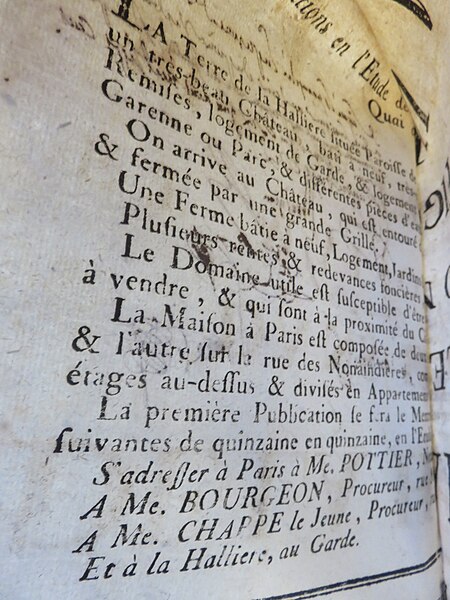 ctions en l'Etude de
Quai
LA Terre de la Halliere située Paroisse de
un très-beau Château, bâti à neuf, très-
Remises, logement de Garde, & logement
Garenne ou Parc, & différentes pièces d'eau
On arrive au Château, qui est entouré
& fermée par une grande Grille.
Une Ferme bâtie à neuf, Logement, Jardins
Plusieurs rentes & redevances foncières
Le Domaine utile est susceptible d'être
à vendre, & qui sont à la proximité du C
La Maison à Paris est composée de deux
& l'autre sur la rue des Nonaindieres, con
étages au-dessus & divisés en Appartemens
La première Publication se fera le Mer
suivantes de quinzaine en quinzaine, en l'Etu
S'adresser à Paris à Me. POTTIER, No
A Me. BOURGEON, Procureur, rue
A Me. CHAPPE le Jeune, Procureur,
Et à la Halliere, au Garde.